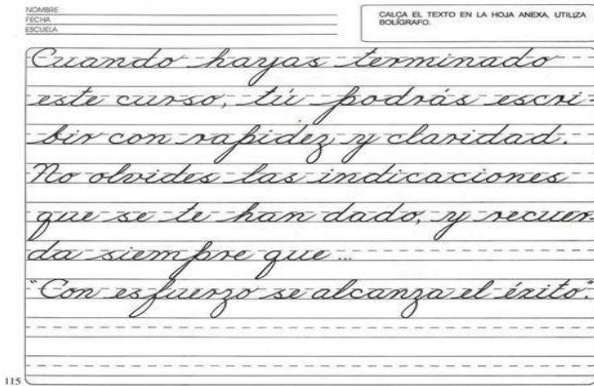 NOMBRE
FECHA
ESCUELA
CALCA EL TEXTO EN LA HOJA ANEXA, UTILIZA
BOLÍGRAFO.
Cuando hayas terminado
este curso, tú podrás escri-
bir con rapidez y claridad.
No olvides las indicaciones
que se te han dado, y recuer-
da siempre que...
"Con esfuerzo se alcanza el éxito".
115